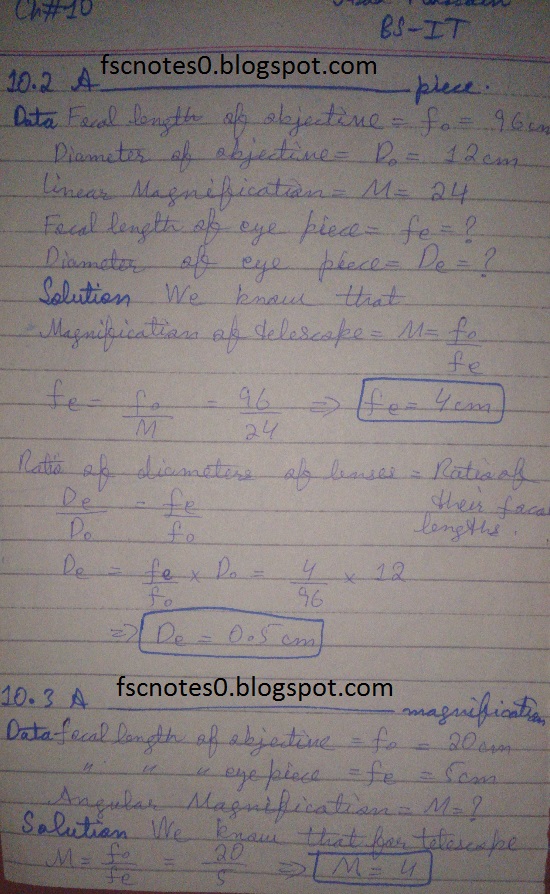 Ch#10
BS-IT
fscnotes0.blogspot.com
10.2 A ______ piece.
Data Focal length of objective = fo = 96 cm
Diameter of objective = Do = 12 cm
Linear Magnification = M = 24
Focal length of eye piece = fe = ?
Diameter of eye piece = De = ?
Solution We know that
Magnification of telescope = M = fo/fe
fe = fo/M = 96/24 => fe = 4 cm
Ratio of diameters of lenses = Ratio of
their focal
lengths.
De/Do = fe/fo
De = fe/fo × Do = 4/96 × 12
=> De = 0.5 cm
fscnotes0.blogspot.com
10.3 A ______ magnification
Data focal length of objective = fo = 20 cm
" " " eye piece = fe = 5 cm
Angular Magnification = M = ?
Solution We know that for telescope
M = fo/fe = 20/5 => M = 4